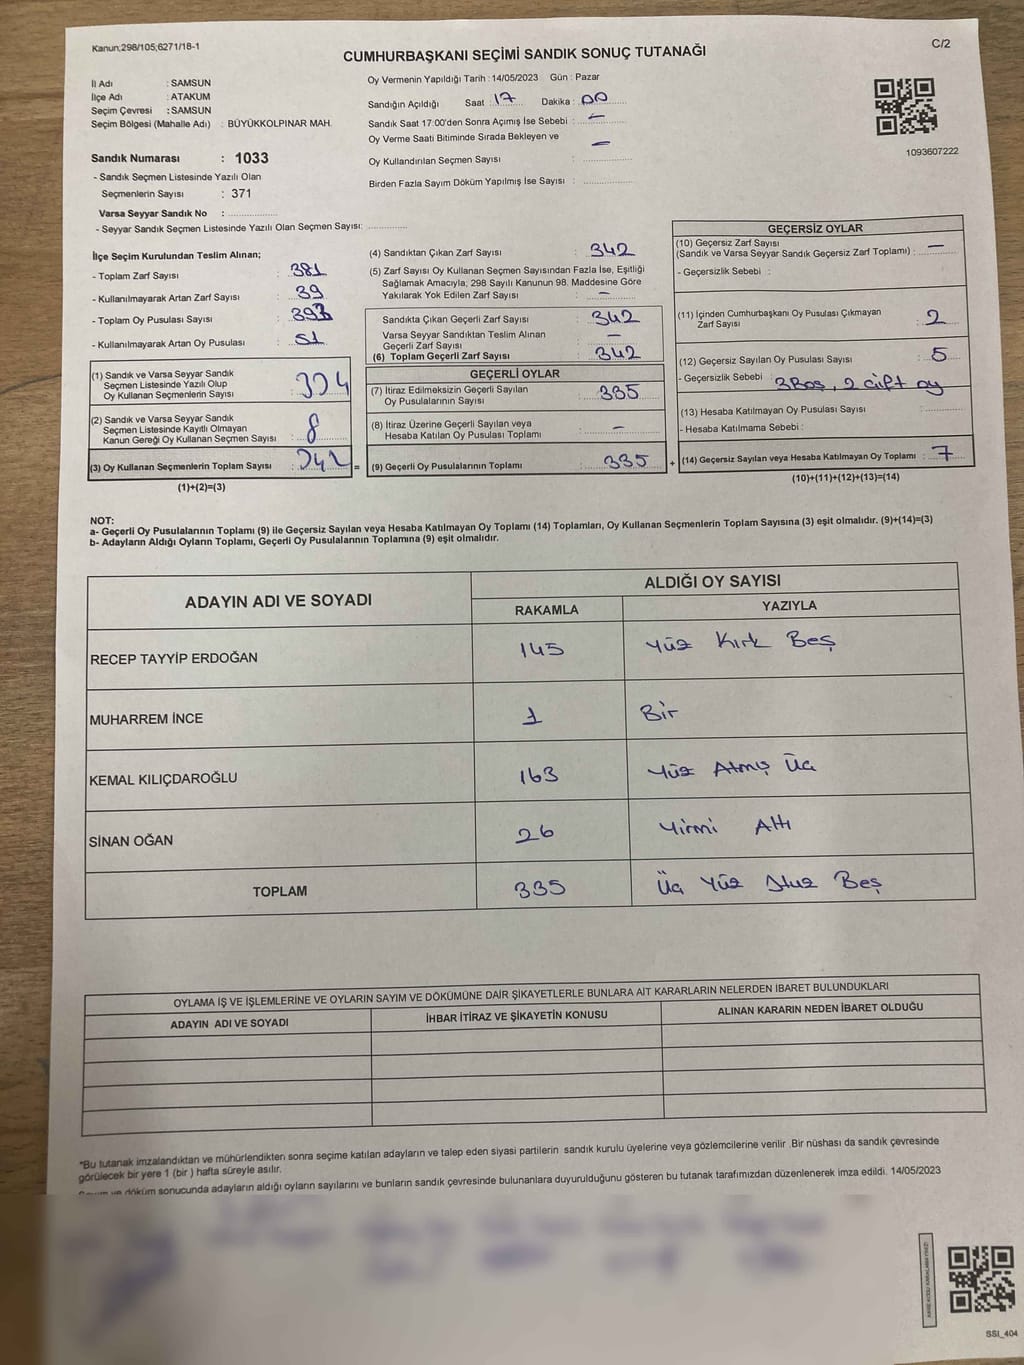 Kanun;298/105;6271/18-1
C/2
CUMHURBAŞKANI SEÇİMİ SANDIK SONUÇ TUTANAĞI
İl Adı : SAMSUN
İlçe Adı : ATAKUM
Seçim Çevresi : SAMSUN
Seçim Bölgesi (Mahalle Adı) : BÜYÜKKOLPINAR MAH.
Sandık Numarası : 1033
- Sandık Seçmen Listesinde Yazılı Olan
Seçmenlerin Sayısı : 371
Varsa Seyyar Sandık No :
- Seyyar Sandık Seçmen Listesinde Yazılı Olan Seçmen Sayısı:
Oy Vermenin Yapıldığı Tarih : 14/05/2023 Gün : Pazar
Sandığın Açıldığı Saat : 17 Dakika : 00
Sandık Saat 17:00'den Sonra Açımış İse Sebebi : —
Oy Verme Saati Bitiminde Sırada Bekleyen ve
Oy Kullandırılan Seçmen Sayısı : —
Birden Fazla Sayım Döküm Yapılmış İse Sayısı :
1093607222
İlçe Seçim Kurulundan Teslim Alınan;
- Toplam Zarf Sayısı : 381
- Kullanılmayarak Artan Zarf Sayısı : 39
- Toplam Oy Pusulası Sayısı : 393
- Kullanılmayarak Artan Oy Pusulası : 51
(1) Sandık ve Varsa Seyyar Sandık
Seçmen Listesinde Yazılı Olup
Oy Kullanan Seçmenlerin Sayısı : 334
(2) Sandık ve Varsa Seyyar Sandık
Seçmen Listesinde Kayıtlı Olmayan
Kanun Gereği Oy Kullanan Seçmen Sayısı : 8
(3) Oy Kullanan Seçmenlerin Toplam Sayısı : 342 =
(1)+(2)=(3)
(4) Sandıktan Çıkan Zarf Sayısı : 342
(5) Zarf Sayısı Oy Kullanan Seçmen Sayısından Fazla İse, Eşitliği
Sağlamak Amacıyla, 298 Sayılı Kanunun 98. Maddesine Göre
Yakılarak Yok Edilen Zarf Sayısı : —
Sandıkta Çıkan Geçerli Zarf Sayısı : 342
Varsa Seyyar Sandıktan Teslim Alınan
Geçerli Zarf Sayısı : —
(6) Toplam Geçerli Zarf Sayısı : 342
GEÇERLİ OYLAR
(7) İtiraz Edilmeksizin Geçerli Sayılan
Oy Pusulalarının Sayısı : 335
(8) İtiraz Üzerine Geçerli Sayılan veya
Hesaba Katılan Oy Pusulası Toplamı : —
(9) Geçerli Oy Pusulalarının Toplamı : 335 +
GEÇERSİZ OYLAR
(10) Geçersiz Zarf Sayısı
(Sandık ve Varsa Seyyar Sandık Geçersiz Zarf Toplamı) : —
- Geçersizlik Sebebi :
(11) İçinden Cumhurbaşkanı Oy Pusulası Çıkmayan
Zarf Sayısı : 2
(12) Geçersiz Sayılan Oy Pusulası Sayısı : 5
- Geçersizlik Sebebi : 3 Boş, 2 çift oy
(13) Hesaba Katılmayan Oy Pusulası Sayısı :
- Hesaba Katılmama Sebebi :
(14) Geçersiz Sayılan veya Hesaba Katılmayan Oy Toplamı : 7
(10)+(11)+(12)+(13)=(14)
NOT:
a- Geçerli Oy Pusulalarının Toplamı (9) ile Geçersiz Sayılan veya Hesaba Katılmayan Oy Toplamı (14) Toplamları, Oy Kullanan Seçmenlerin Toplam Sayısına (3) eşit olmalıdır. (9)+(14)=(3)
b- Adayların Aldığı Oyların Toplamı, Geçerli Oy Pusulalarının Toplamına (9) eşit olmalıdır.
ADAYIN ADI VE SOYADI ALDIĞI OY SAYISI
RAKAMLA YAZIYLA
RECEP TAYYİP ERDOĞAN 145 Yüz Kırk Beş
MUHARREM İNCE 1 Bir
KEMAL KILIÇDAROĞLU 163 Yüz Atmış Üç
SİNAN OĞAN 26 Yirmi Altı
TOPLAM 335 Üç Yüz Otuz Beş
OYLAMA İŞ VE İŞLEMLERİNE VE OYLARIN SAYIM VE DÖKÜMÜNE DAİR ŞİKAYETLERLE BUNLARA AİT KARARLARIN NELERDEN İBARET BULUNDUKLARI
ADAYIN ADI VE SOYADI İHBAR İTİRAZ VE ŞİKAYETİN KONUSU ALINAN KARARIN NEDEN İBARET OLDUĞU
*Bu tutanak imzalandıktan ve mühürlendikten sonra seçime katılan adayların ve talep eden siyasi partilerin sandık kurulu üyelerine veya gözlemcilerine verilir .Bir nüshası da sandık çevresinde
görülecek bir yere 1 (bir ) hafta süreyle asılır.
döküm sonucunda adayların aldığı oyların sayılarını ve bunların sandık çevresinde bulunanlara duyurulduğunu gösteren bu tutanak tarafımızdan düzenlenerek imza edildi. 14/05/2023
SSI_404